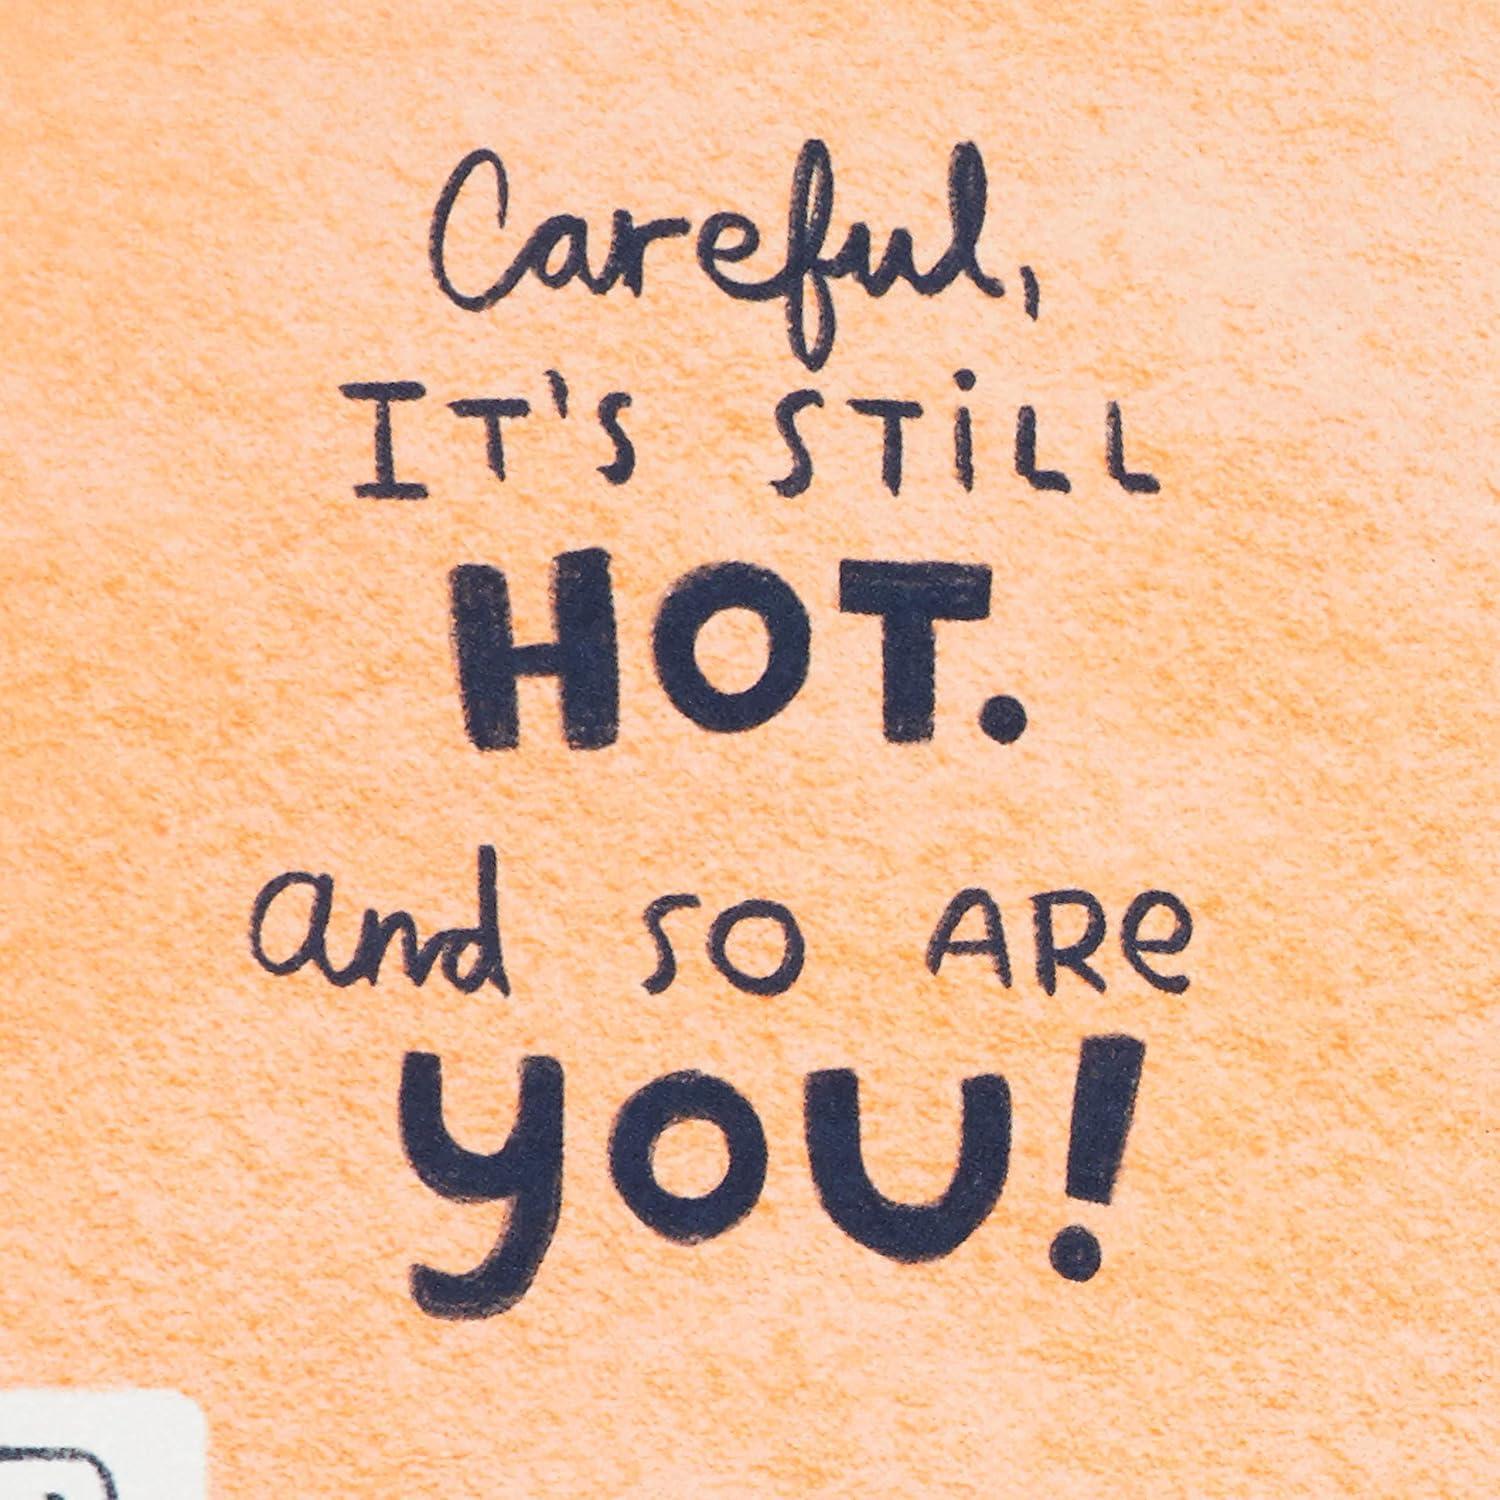 Careful,
IT'S STiLL
HOT.
and so ARe
you!